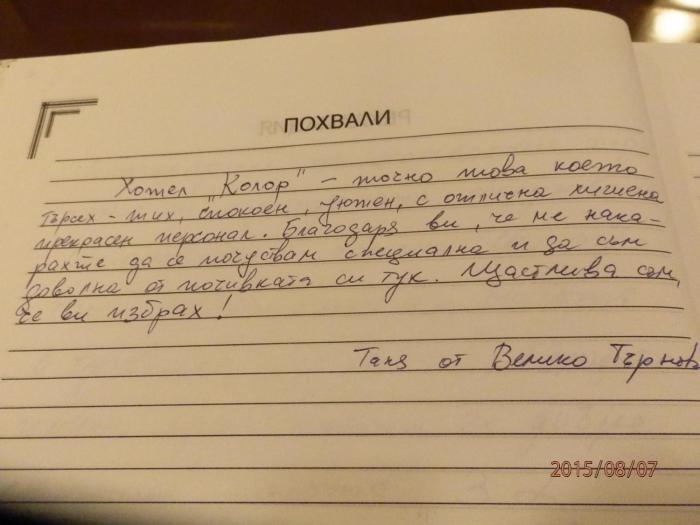 ПОХВАЛИ
Хотел "Колор" - точно това което
търсех - тих, спокоен, уютен, с отлична хигиена
прекрасен персонал. Благодаря ви, че ме нака-
рахте да се почуствам специална и да съм
доволна от почивката си тук. Щастлива съм,
че ви избрах!
Таня от Велико Търново
2015/08/07